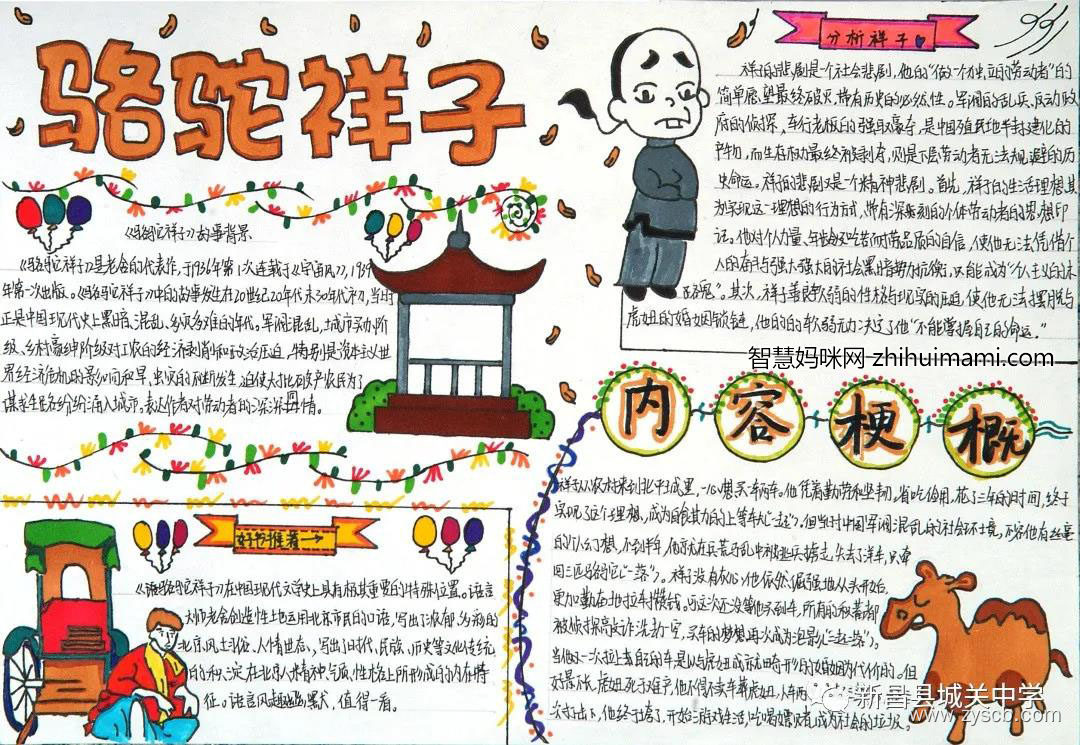 骆驼祥子
《骆驼祥子》故事背景
《骆驼祥子》是老舍的代表作,于1936年第1次连载于《宇宙风》,1939
年第一次出版。《骆驼祥子》中的故事发生在20世纪20年代末30年代初,当时
正是中国现代史上黑暗、混乱、多灾多难的年代。军阀混乱,土城市买办阶
级、乡村豪绅阶级对工农的经济剥削和政治压迫,特别是资本主义世
界经济危机的影响和旱,虫灾的不断发生,迫使大批破产农民为了
谋求生路纷纷涌入城市。表达作者对劳动者的深深同情。
好书推荐
《骆驼祥子》在中国现代文学史上具有极其重要的特殊位置。语言
大师老舍创造性上地运用北京市民的口语,写出了浓郁、多彩的
北京风土习俗、人情世态,写出了时代、民族、历史等文化传统
的积淀,在北京人精神气质、性格上所形成的内在特
征。语言风趣幽默,值得一看。
分析祥子
祥子的悲剧是一个社会悲剧,他的"做一个独立的劳动者"的
简单愿望最终破灭,带有历史的必然性。军阀的乱兵、反动政
府的侦探,车行老板的强取豪夺,是中国殖民地半封建化的
而生存权力最终被剥夺,则是下层劳动者无法规避的历
史命运。祥子的悲剧又是一个精神悲剧。首先,祥子的生活理想
为实现这一理想的行为方式,带有深深刻的个体劳动者的思想印
记。他对个人力量、年轻和吃苦耐劳品质的自信,使他无法凭借个
人的奋斗与强大强大的社会黑暗势力抗衡,只能成为"个人主义的末
路鬼"。其次,祥子善良软弱的性格与现实的压迫,使他无法摆脱与
虎妞的婚姻锁链,他的的软弱无力决定了他"不能掌握自己的命运。"
智慧妈咪网 zhihuimami.com
内容梗概
祥子从农村来到北平城里,一心想买辆车。他凭着勤劳和坚韧,省吃俭用,花了三年的时间,终于
实现了这个理想,成为自食其力的上等车夫("一起")。但当时中国军阀混乱的社会环境,不容他有丝毫
的个人幻想,不到半年,他就在兵荒马乱中被逃兵掳走,失去了洋车,只牵
回三匹骆驼("一落")。祥子没有灰心,他依然倔强地从头开始,
更加勤奋地拉车攒钱。可这次还没等他买到车,所有的积蓄都
被侦探敲诈洗劫一空,买车的梦想再次成为泡影("二起二落")。
当他又一次拉上者自己的车是以与虎妞成就畸形的婚姻为代价的。但
好景不长,虎妞死于难产,他不得不卖车葬虎妞,人车两
次打击下,他终于垮了,开始游戏生活,吃喝嫖赌,成为社会的垃圾。
新昌县城关中学
www.zyscb.com